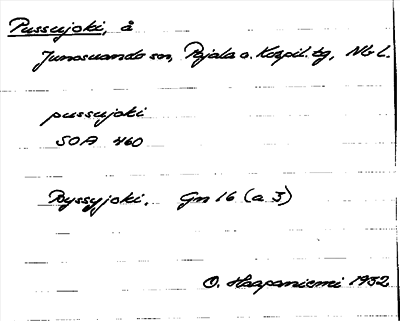 Pussujoki, å
Junosuando sn, Pajala o. Korpil. tg, Nb l.
pussujoki
SOA 460
Pyssyjoki, Gn 16 (a 3)
O. Haapaniemi 1932